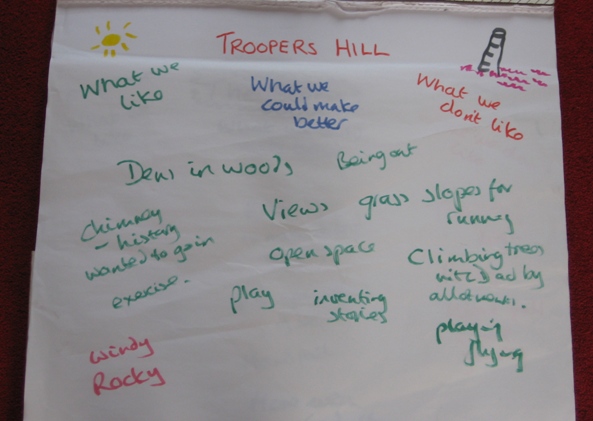 TROOPERS HILL
What we
like
What we
could make
better
What we
don't like
Dens in woods
Being out
Chimney
- history
wanted to go in
Views
grass slopes for
running
open space
Climbing trees
with Dad by
allotments.
exercise.
play
inventing
stories
playing
windy
Rocky